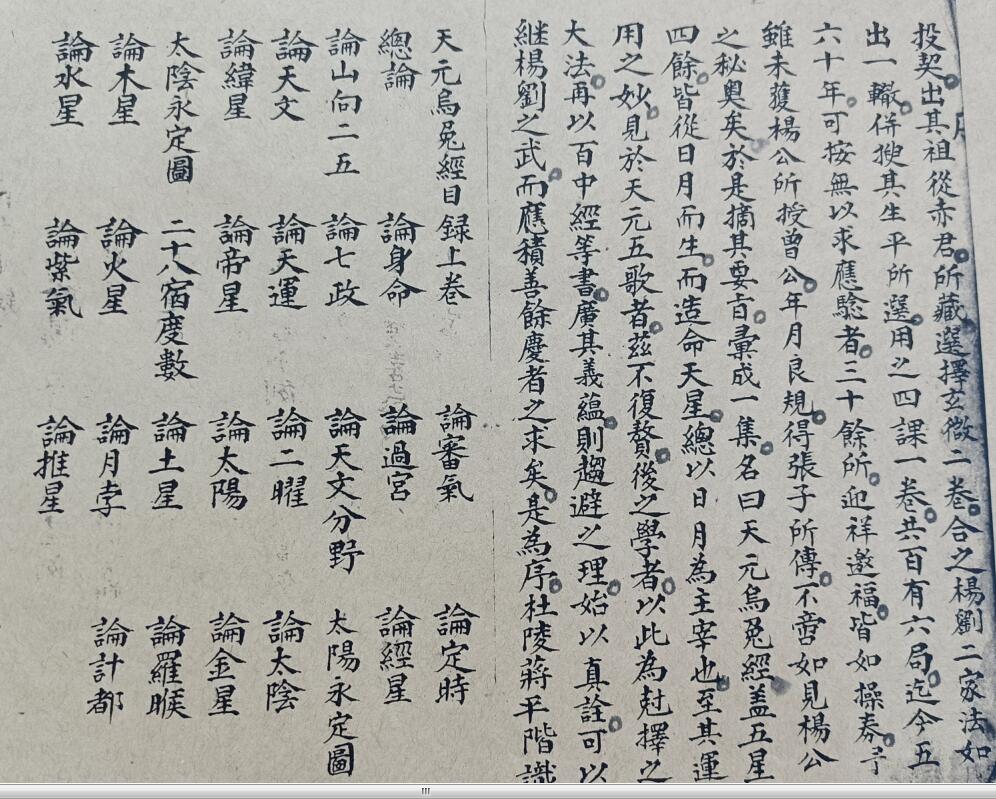 投契出其祖從赤君所藏選擇玄微二卷合之楊劉二家法如
出一轍併搜其生平所選用之四課一卷共百有六局迄今五
六十年可按無以求應驗者三十餘所迎祥邀福皆如操券予
雖未獲楊公所授曾公年月良規得張子所傳不啻如見楊公
之秘奧矣於是摘其要旨彙成一集名曰天元烏兎經蓋五星
四餘皆從日月而生而造命天星總以日月為主宰也至其運
用之妙見於天元五歌者茲不復贅後之學者以此為尅擇之
大法再以百中經等書廣其義蘊則趨避之理始以真詮可以
継楊劉之武而應積善餘慶者之求矣是為序杜陵蔣平階識
天元烏兎經目録上卷 論審氣 論定時
總論 論身命 論過宮 論經星
論山向二五 論七政 論天文分野 太陽永定圖
論天文 論天運 論二曜 論太陰
論緯星 論帝星 論太陽 論金星
太陰永定圖 二十八宿度數 論土星 論羅睺
論木星 論火星 論月孛 論計都
論水星 論紫氣 論推星